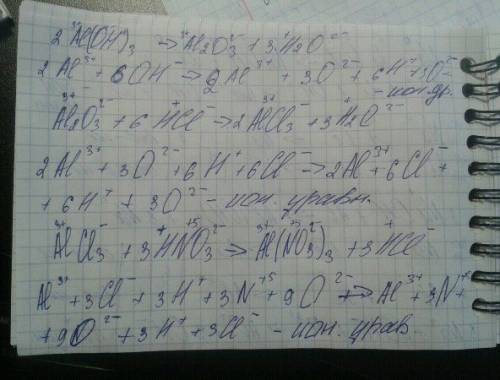 2Al(OH)₃ → Al₂O₃ + 3H₂O
2Al³⁺ + 6OH⁻ → 2Al³⁺ + 3O²⁻ + 6H⁺ + 3O²⁻
- ион. ур.
Al₂O₃ + 6HCl → 2AlCl₃ + 3H₂O
2Al³⁺ + 3O²⁻ + 6H⁺ + 6Cl⁻ → 2Al³⁺ + 6Cl⁻ +
+ 6H⁺ + 3O²⁻ - ион. уравн.
AlCl₃ + 3HNO₃ → Al(NO₃)₃ + 3HCl
Al³⁺ + 3Cl⁻ + 3H⁺ + 3N⁺⁵ + 9O²⁻ → Al³⁺ + 3N⁺⁵ +
+ 9O²⁻ + 3H⁺ + 3Cl⁻ - ион. урав.